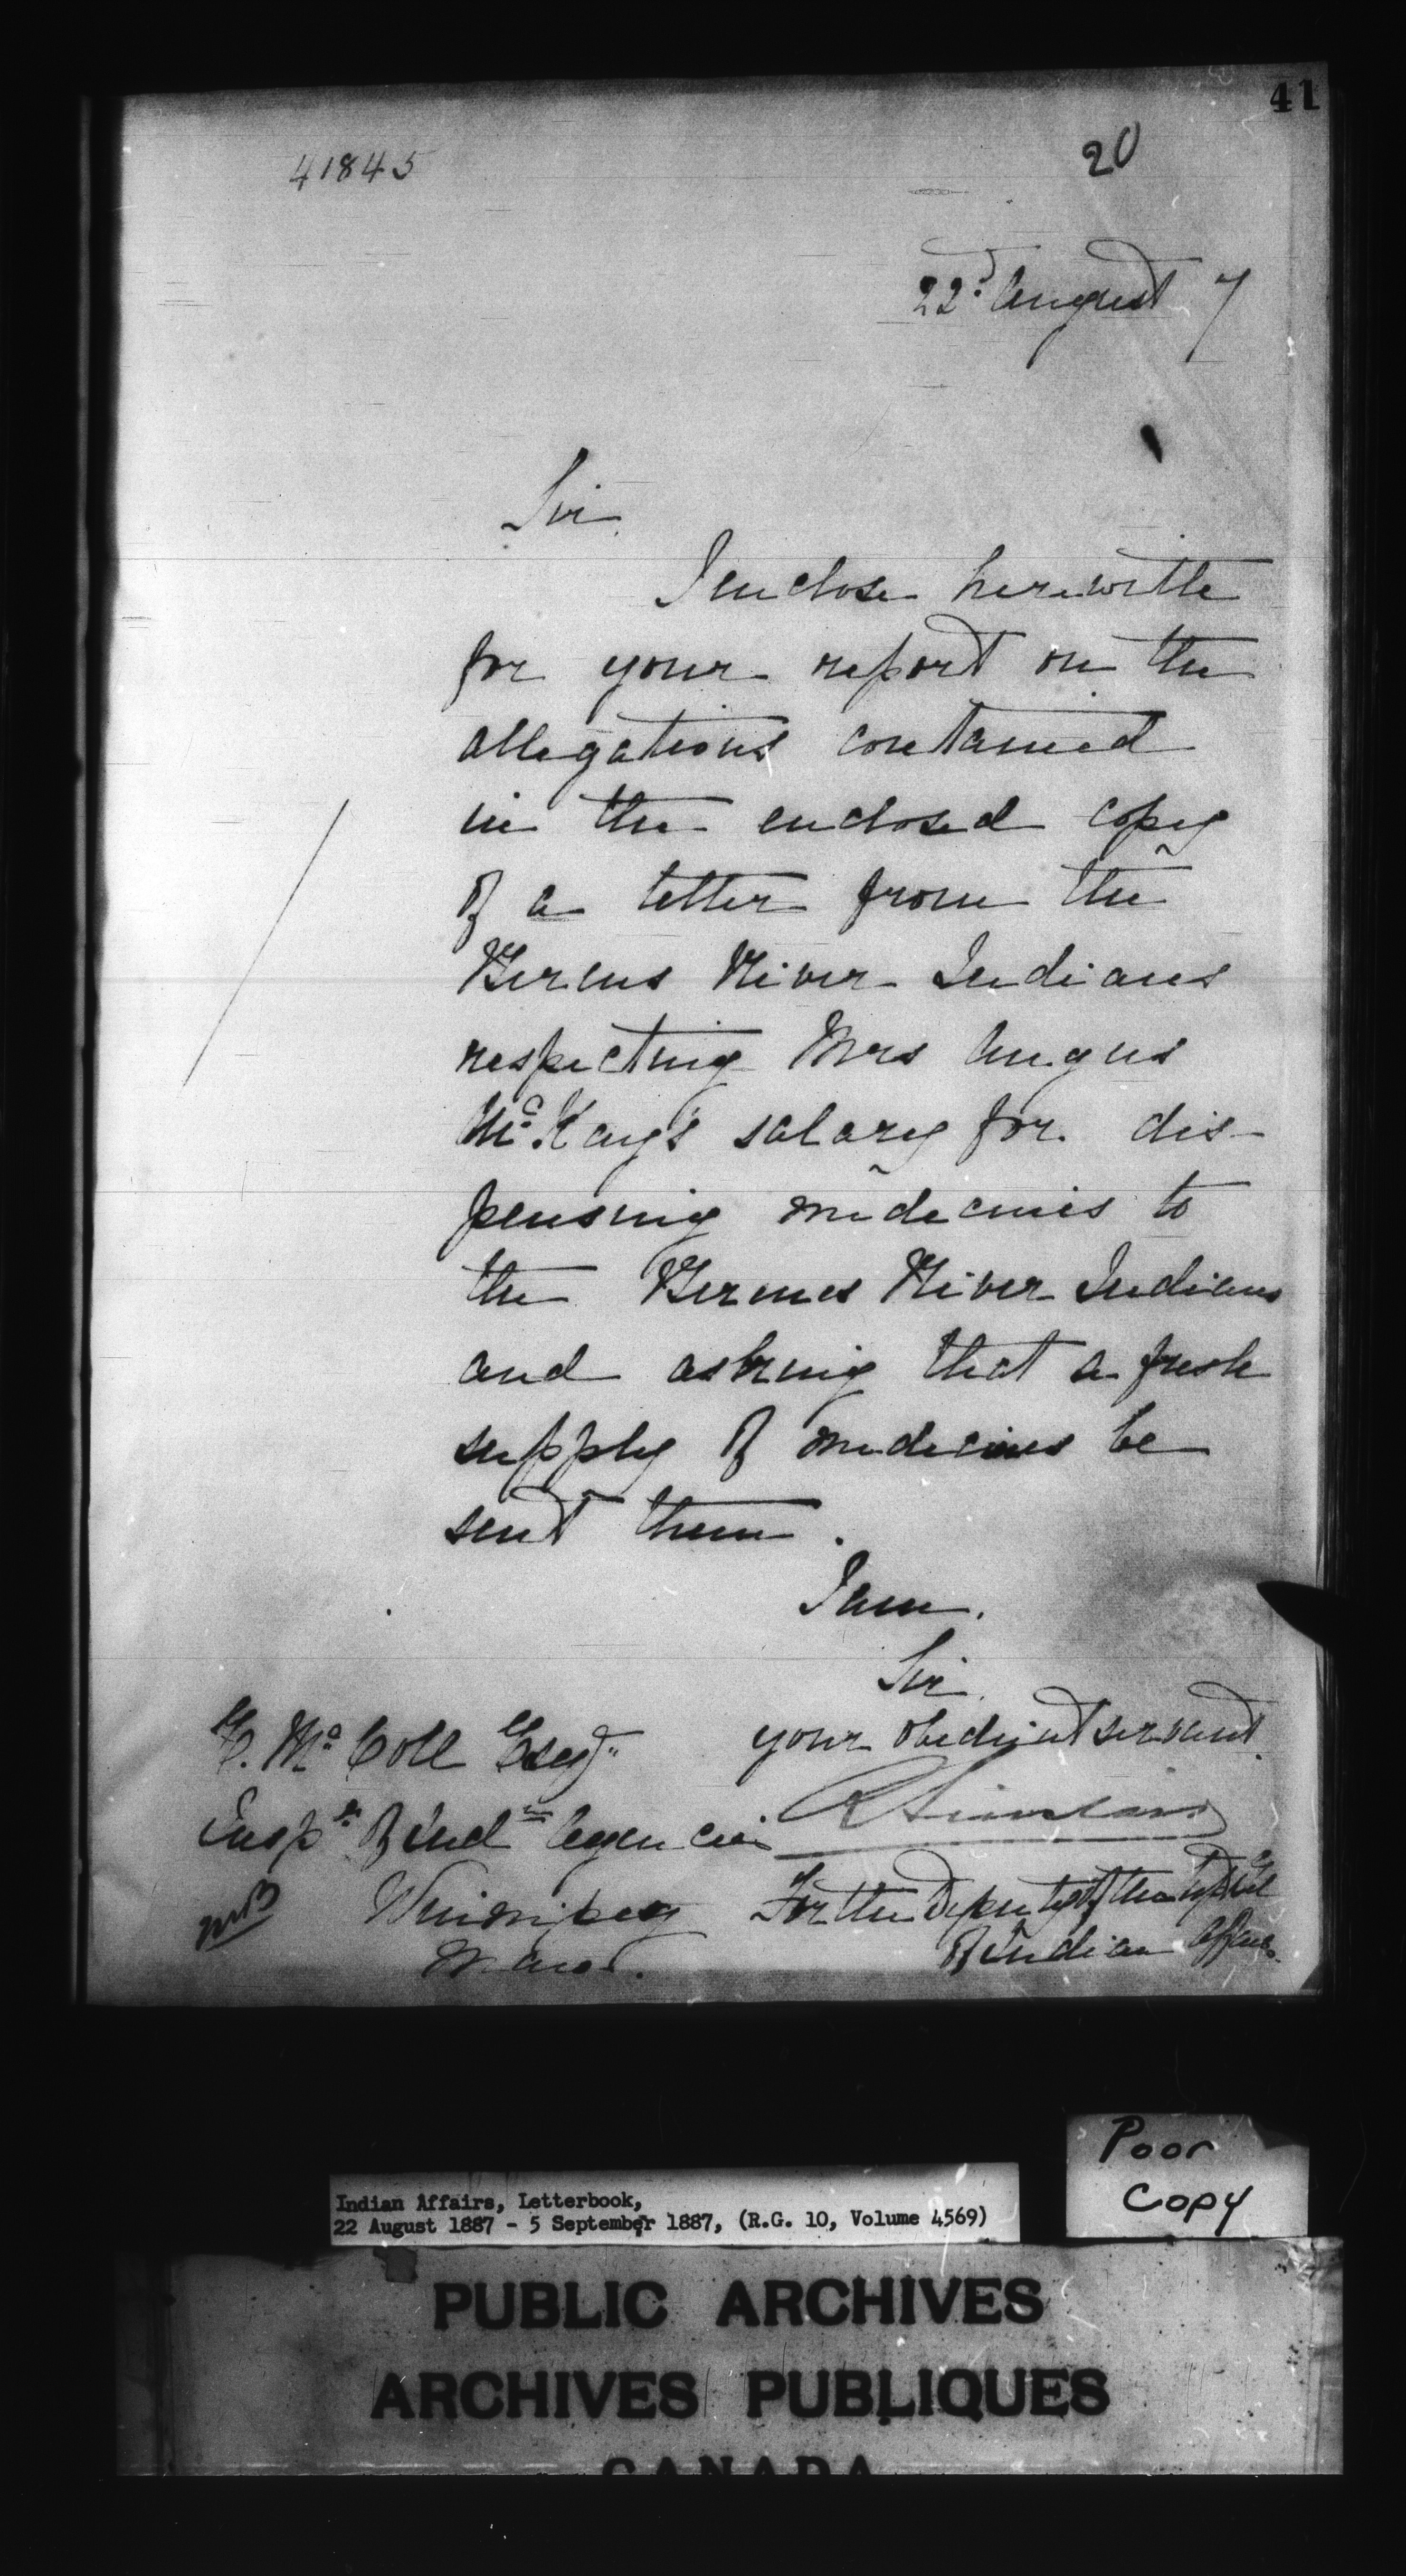 41
41845
20
22d August 7
Sir,
I enclose herewith
for your report on the
allegations contained
in the enclosed copy
of a letter from the
Berens River Indians
respecting Mrs Angus
McKay's salary for dis-
pensing medecines to
the Berens River Indians
and asking that a fresh
supply of medicines be
sent them.
I am.
Sir,
your obedient servant.
E. McColl Esqr
Inspr of Indn Agencies
R Sinclair
Winnipeg
Man.
For the Deputy of the Supt Genl
of Indian Affairs.
Poor
Copy
Indian Affairs, Letterbook,
22 August 1887 - 5 September 1887, (R.G. 10, Volume 4569)
PUBLIC ARCHIVES
ARCHIVES PUBLIQUES
CANADA